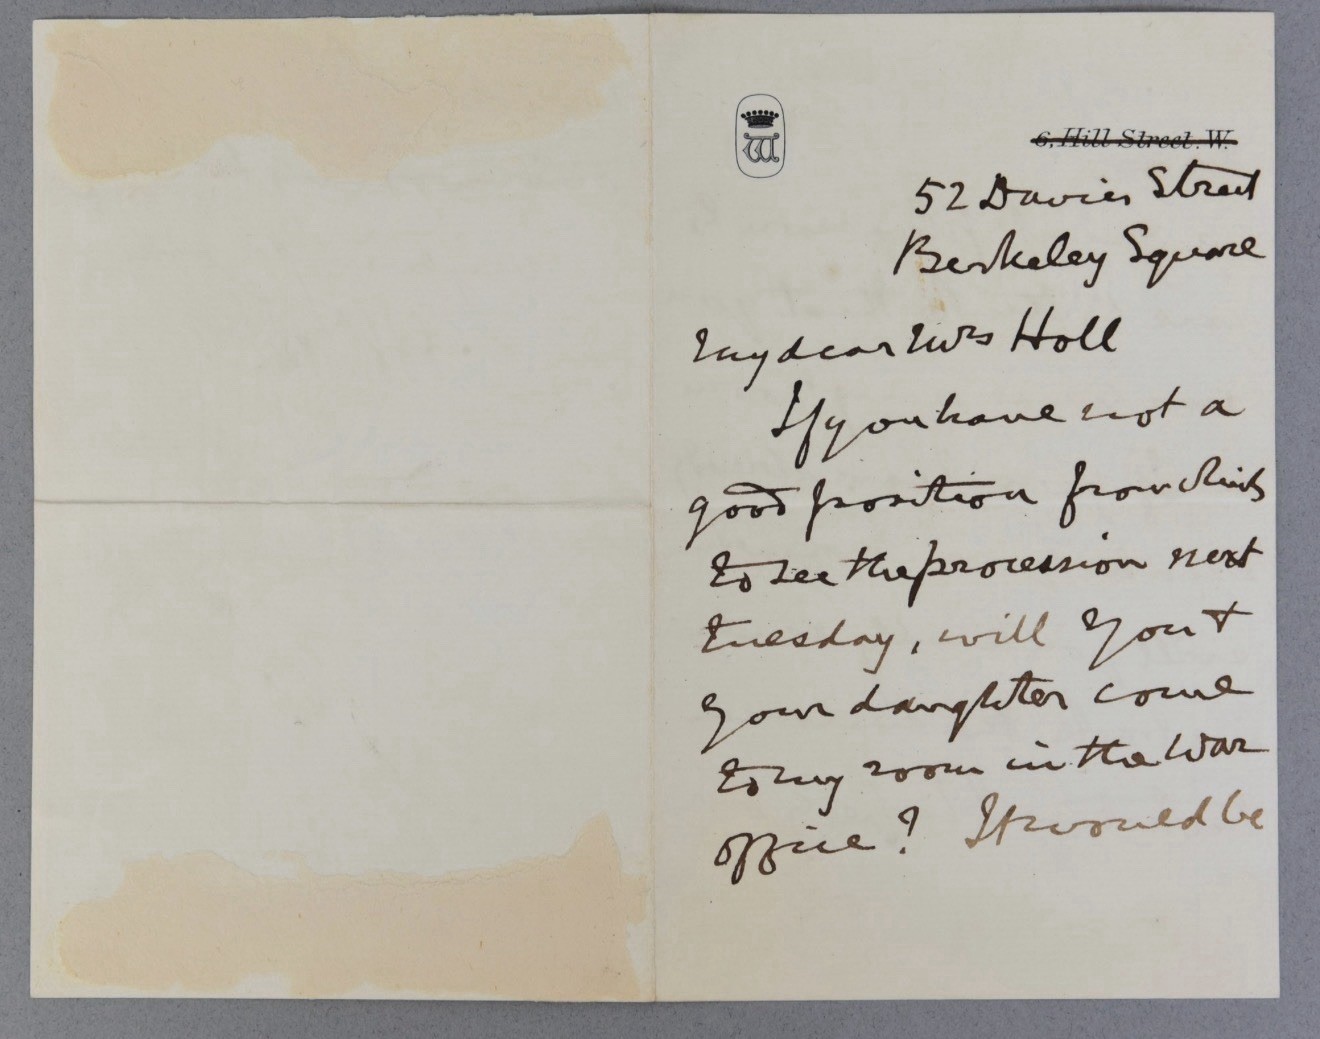 W
6, Hill Street. W.
52 Davies Street
Berkeley Square
My dear Mrs Holl
If you have not a
good position from which
to see the procession next
Tuesday, will you &
your daughter come
to my room in the War
Office? It would be